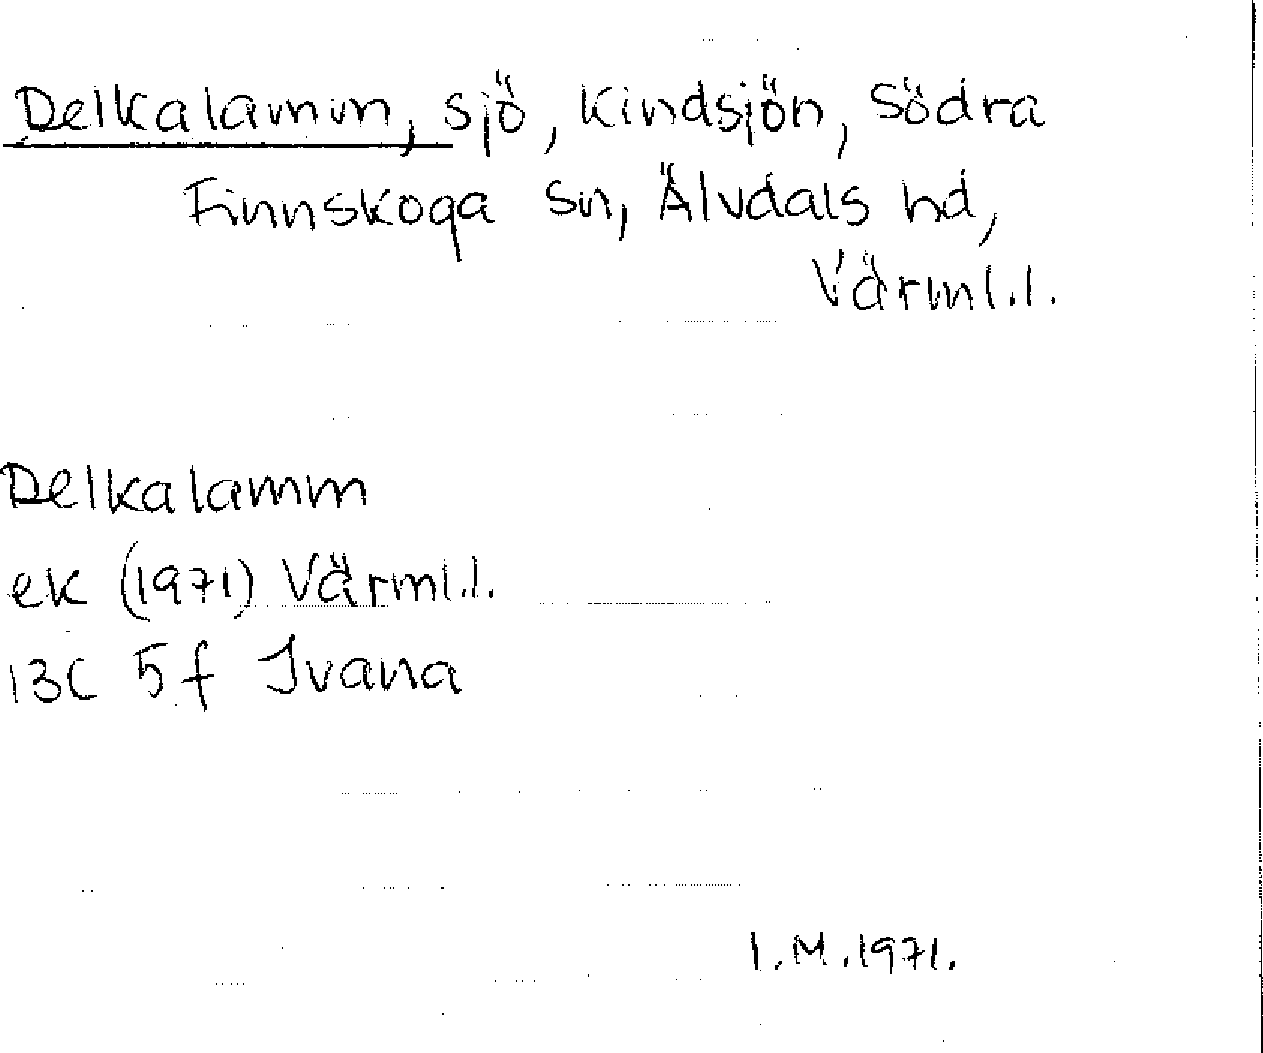 Delkalamm, sjö, Kindsjön, Södra
Finnskoga sn, Älvdals hd,
Värml.l.
Delkalamm
ek (1971) Värml.l.
13C 5f Ivana
I.M.1971.